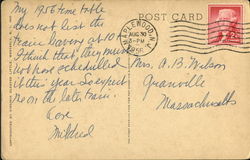 My 1956 time table
does not list the
train leaving at 10
I think that they must
not have scheduled
it this year so expect
me on the later train.
Love
Mildred
POST CARD
MAPLEWOOD, N.
AUG 30
PM
1956
2¢
Mrs. A. B. Wilson
Granville
Massachusetts